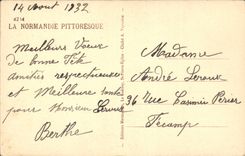 14 Aout 1932
LA NORMANDIE PITTORESQUE
Meilleurs Voeux
de bonne Fête
amitiés respectueuses
et Meilleure Santé
pour Monsieur Leroux
Berthe
Madame
André Leroux
36 Rue Casimir Perier
Fécamp